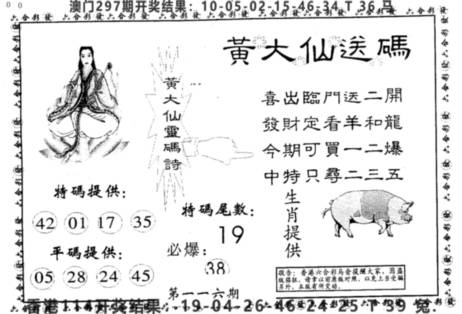 澳门297期开奖结果：10-05-02-15-46-34 T 36 马
黃大仙送碼
黃大仙靈碼詩
喜出臨門送二開
發財定看羊和龍
今期可買一二爆
中特只尋二三五
特碼提供：
42 01 17 35
平碼提供：
05 28 24 45
特碼尾數：
19
必爆：
38
第一一六期
生肖提供
香港114开奖结果：-19-04-26-46-24-25 T 39 兔